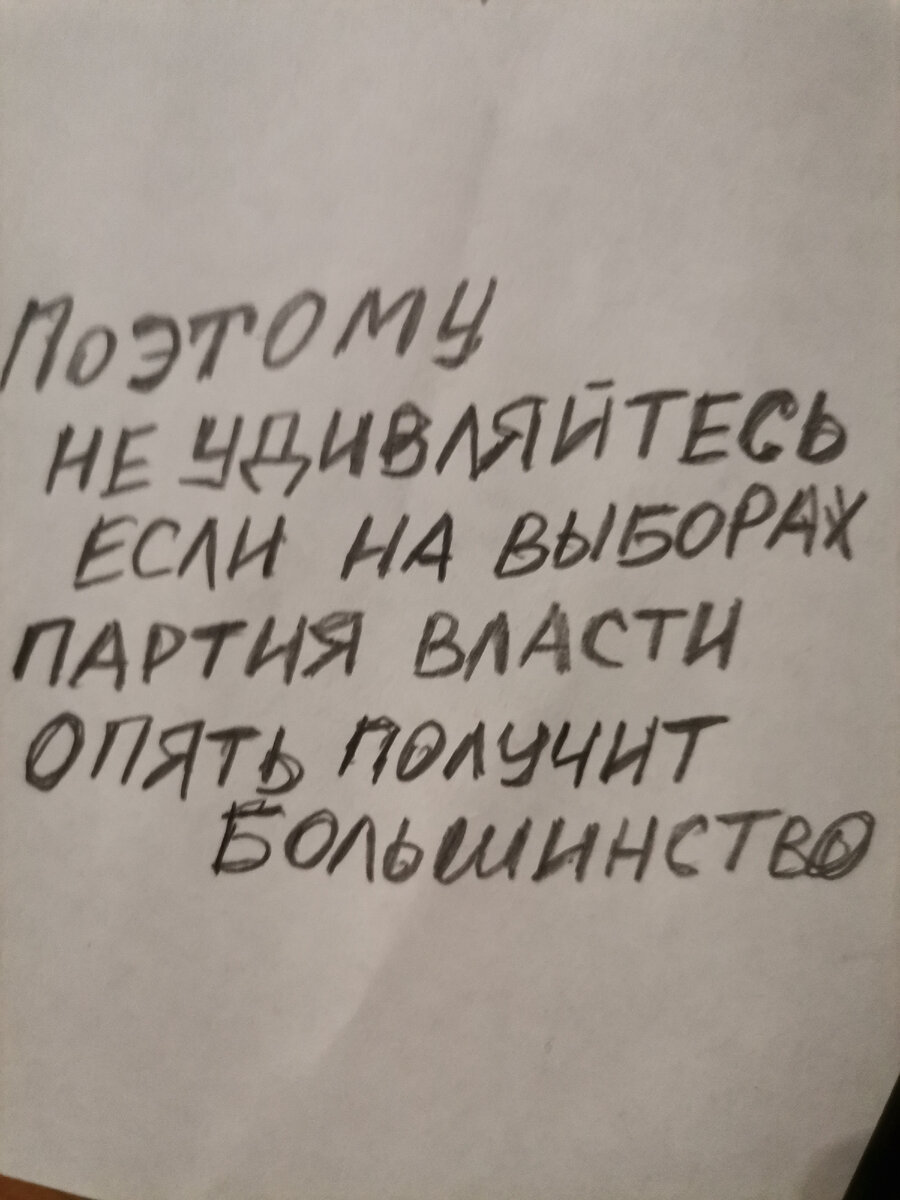 Поэтому
НЕ УДИВЛЯЙТЕСЬ
ЕСЛИ НА ВЫБОРАХ
ПАРТИЯ ВЛАСТИ
ОПЯТЬ ПОЛУЧИТ
БОЛЬШИНСТВО